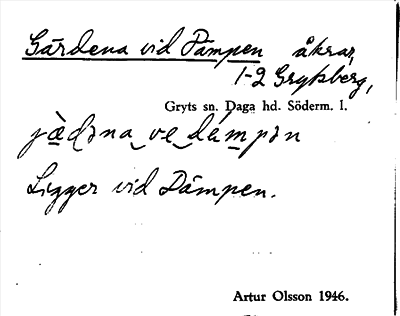 Gärdena vid Dämpen åkrar,
1-2 Grytsberg,
Gryts sn. Daga hd. Söderm. l.
jà̤ḍəna ve dämpən
Ligger vid Dämpen.
Artur Olsson 1946.